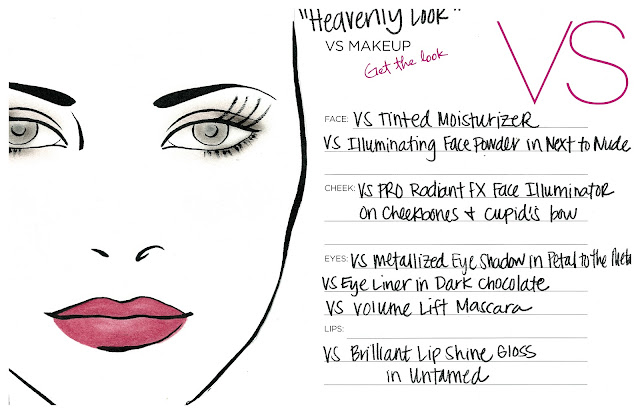 "Heavenly Look"
VS MAKEUP
Get the look
VS
FACE: VS Tinted Moisturizer
VS Illuminating Face Powder in Next to Nude
CHEEK: VS PRO Radiant FX Face Illuminator
on Cheekbones & Cupid's bow
EYES: VS Metallized Eye Shadow in Petal to the Meta
VS Eye Liner in Dark Chocolate
VS Volume Lift Mascara
LIPS:
VS Brilliant Lip Shine Gloss
in Untamed